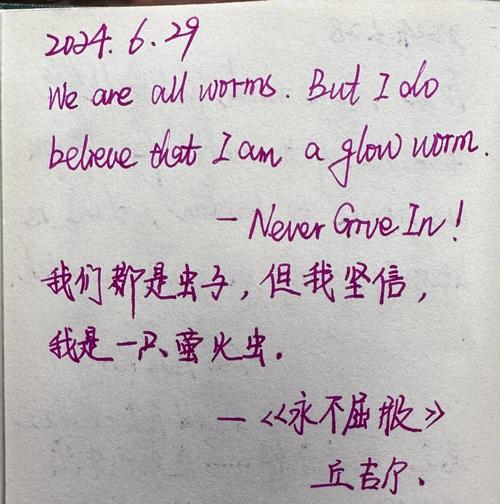 2024.6.29
We are all worms. But I do
believe that I am a glow worm.
— Never Give In!
我们都是虫子，但我坚信，
我是一只萤火虫.
— 《永不屈服》
丘吉尔.